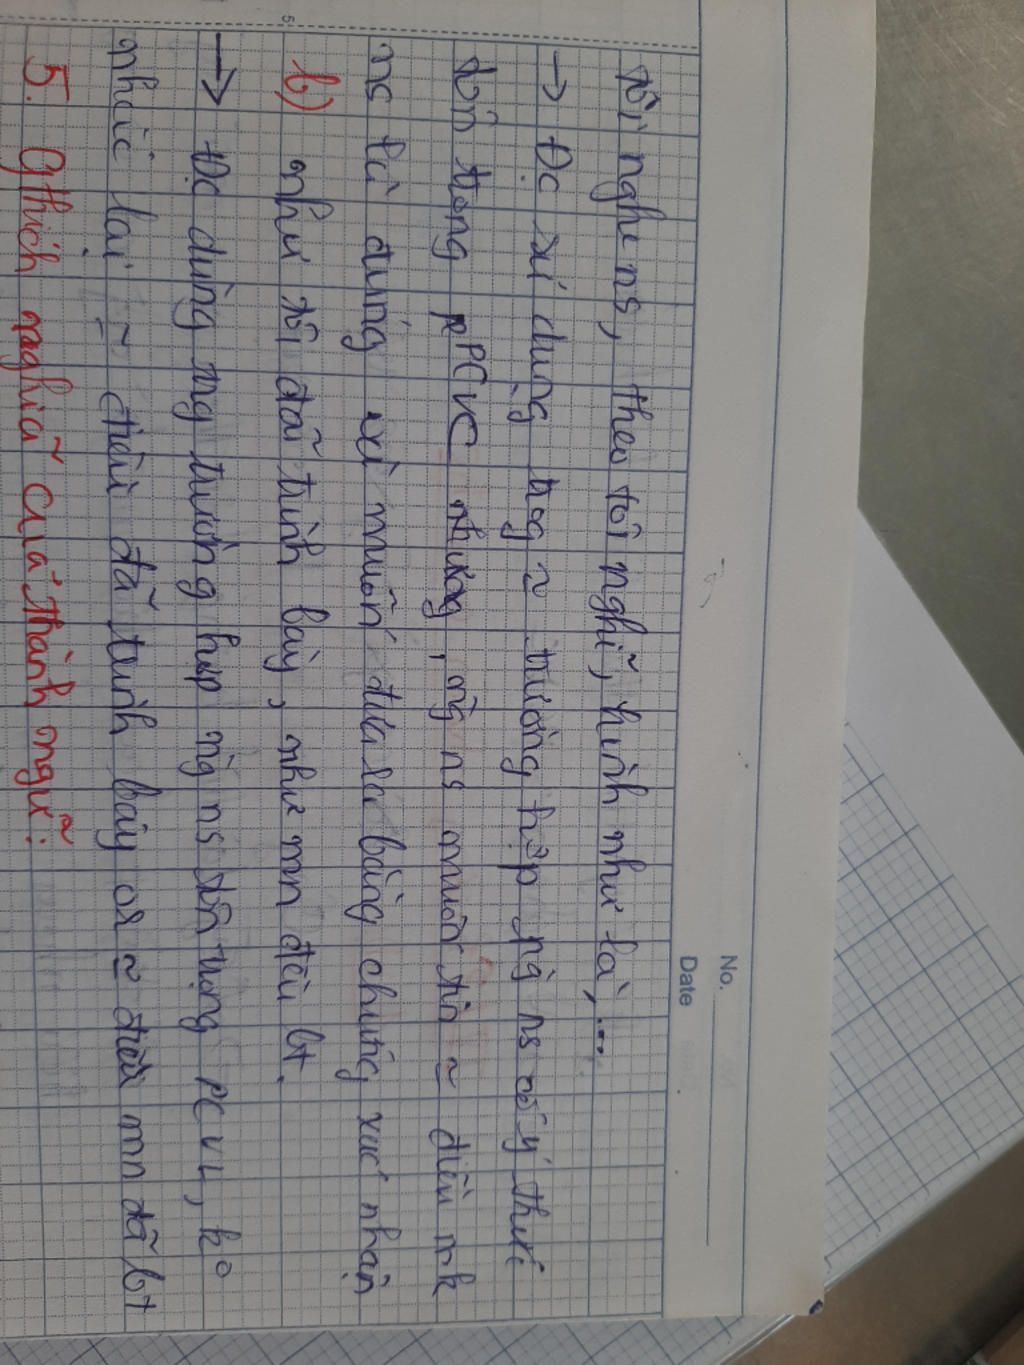 No.
Date
tôi nghe ns, theo tôi nghĩ, hình như là,...
→ Đc sử dụng trog ~ trường hợp ng` ns có ý thức
tôn trọng PCVC nhưng, ng` ns muốn tin ~ điều mk
ns là đúng và muốn đưa ra bằng chứng xác nhận
b) như tôi đã trình bày, như mn đều bt.
→ Đc dùng trg trường hợp ng` ns tôn trọng PCVL, ko
nhắc lại ~ điều đã trình bày or ~ điều mn đã bt
5. Gthích nghĩa của thành ngữ:
5